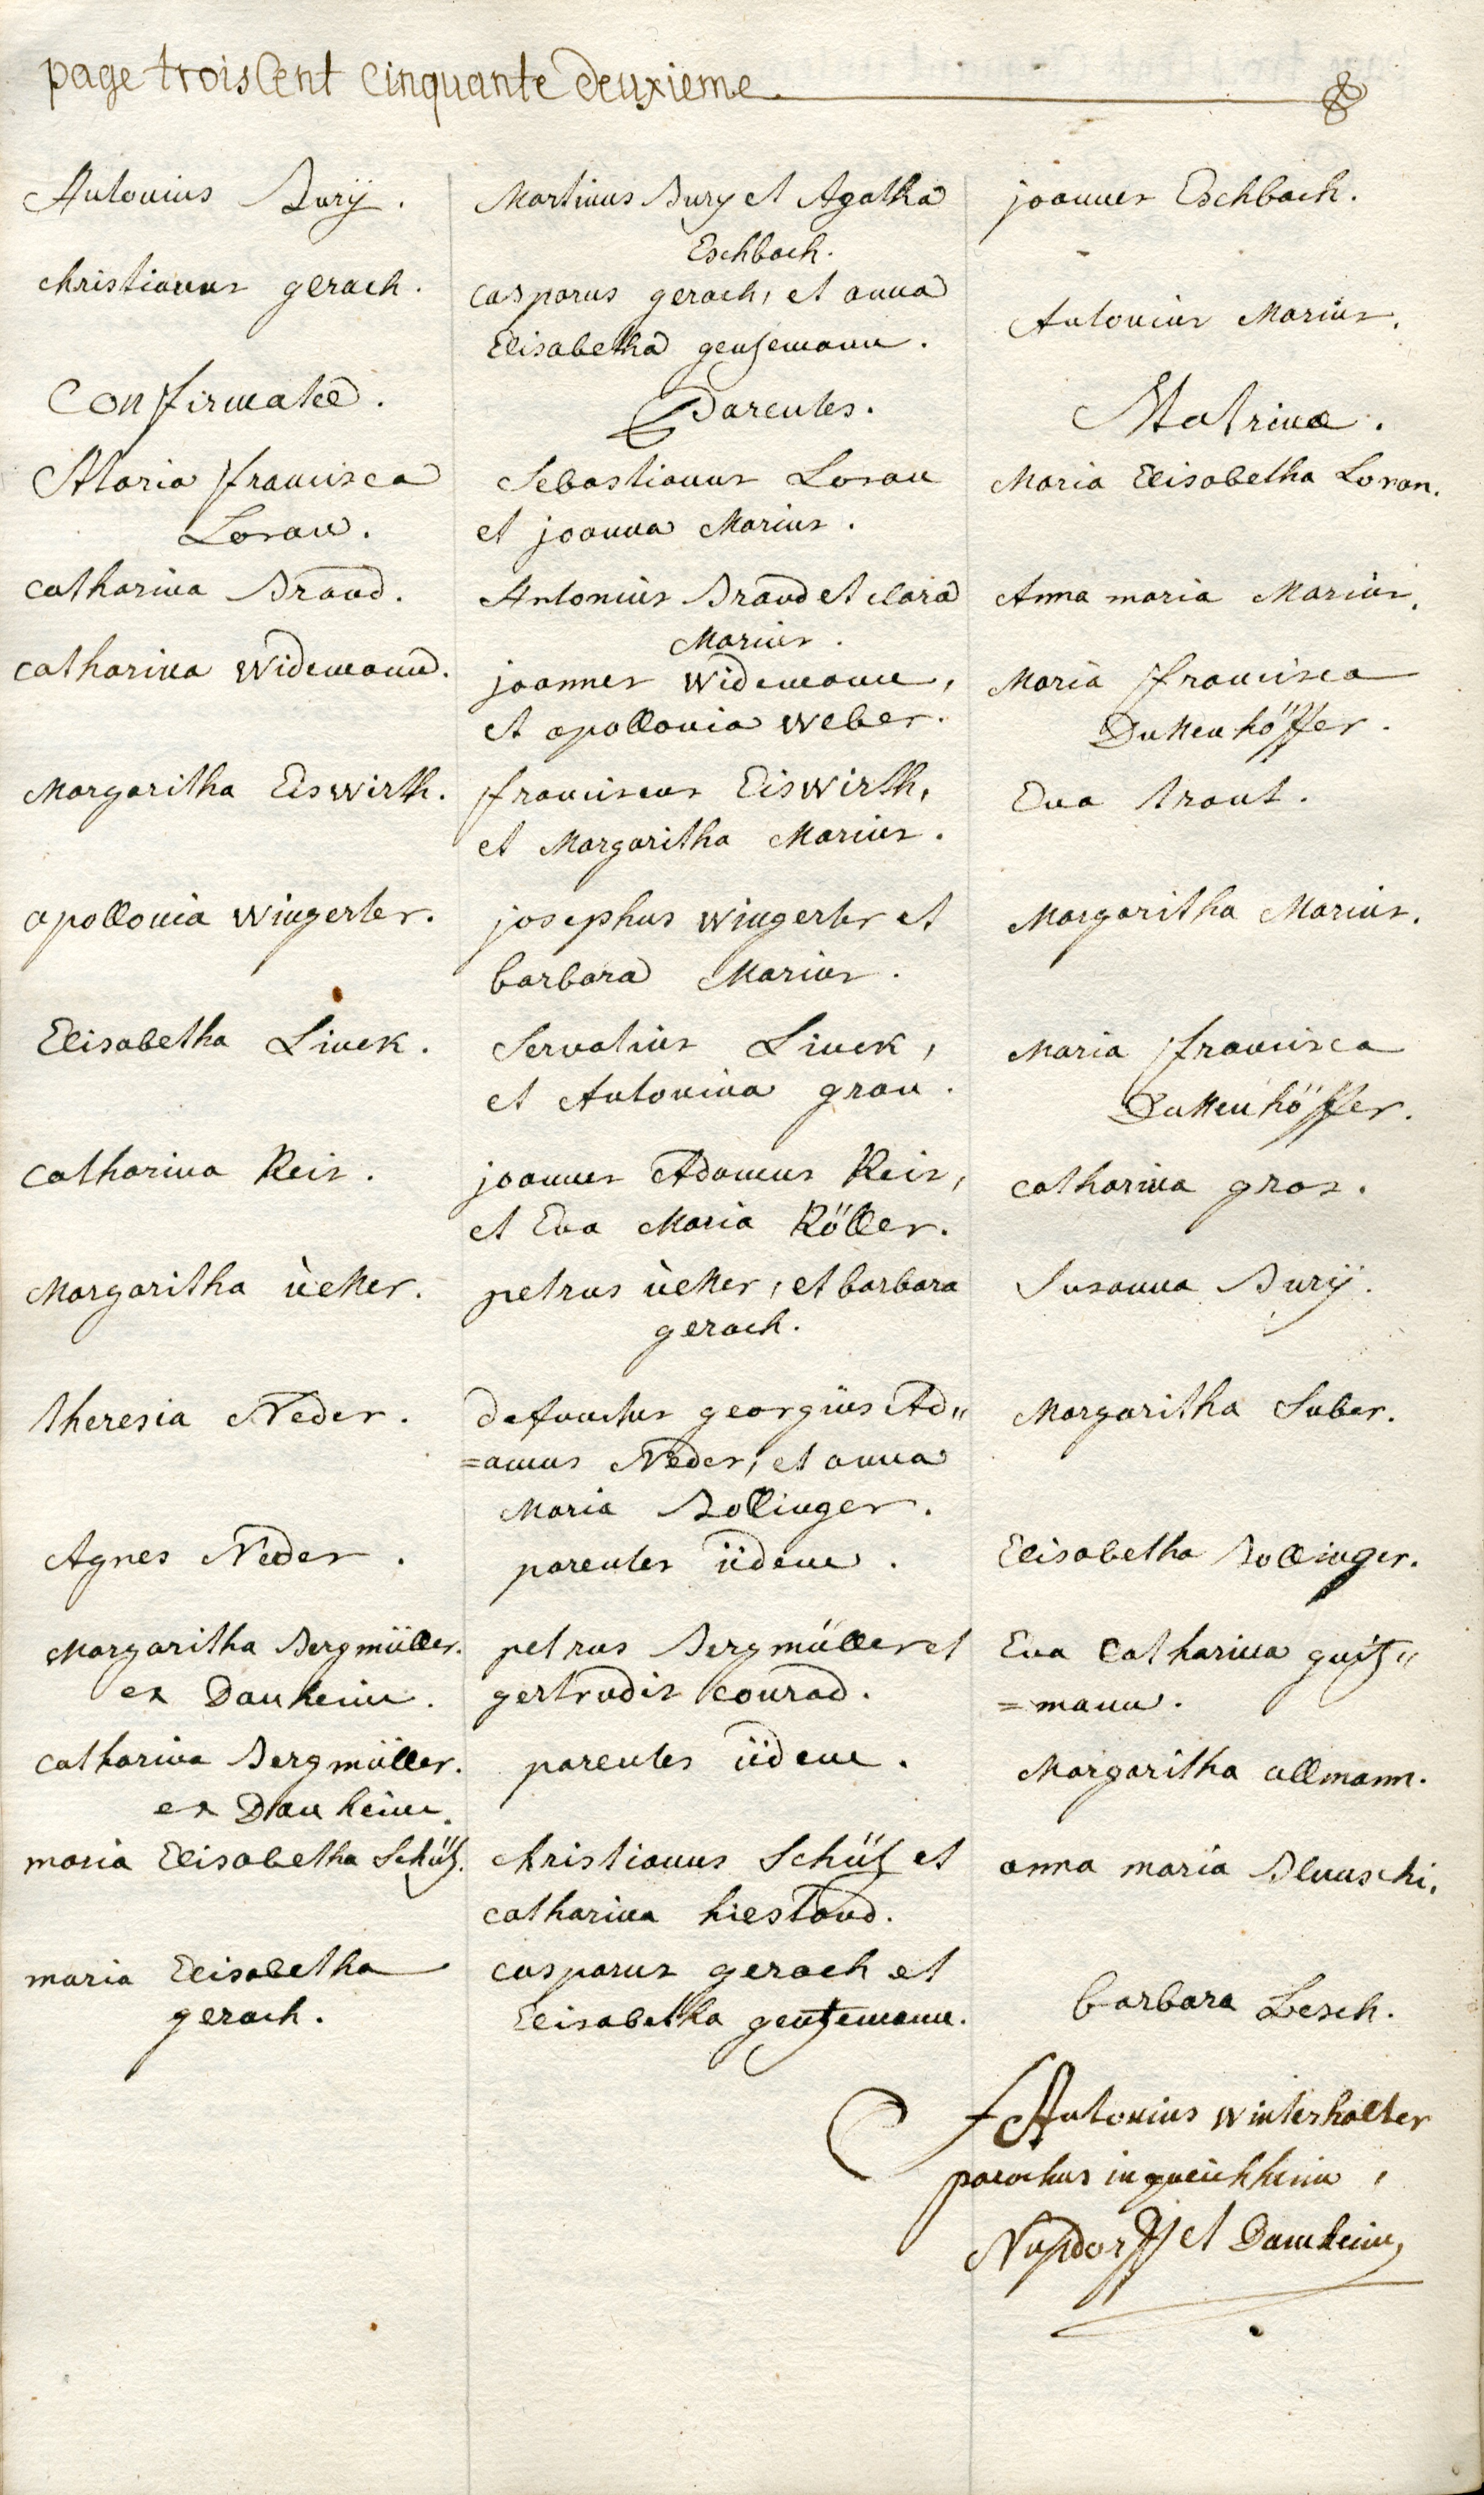 page troiscent cinquante deuxieme.
Antonius Burÿ.
Martinus Bury et Agatha
Eschbach.
joannes Eschbach.
christianus gerach.
casparus gerach, et anna
Elisabetha gentzemann.
Antonius Marius.
Confirmatæ.
Parentes.
Matrinæ.
Maria francisca
Loran.
Sebastianus Loran
et joanna Marius.
Maria Elisabetha Loran.
catharina Brand.
Antonius Brand et clara
Marius.
Anna maria Marius.
catharina Widemann.
joannes Widemann,
et apollonia weber.
Maria francisca
Duttenhöffer.
Margaritha Eiswirth.
franciscus Eiswirth,
et Margaritha Marius.
Eva traut.
apollonia wingerter.
josephus wingerter et
barbara Marius.
Margaritha Marius.
Elisabetha Linck.
Servatius Linck,
et Antonina grau.
Maria francisca
Duttenhöffer.
catharina Reis.
joannes Adamus Reis,
et Eva Maria Röller.
catharina gros.
Margaritha ùetter.
petrus ùetter, et barbara
gerach.
Susanna Burÿ.
theresia Neder.
defunctus georgius Ad"
=amus Neder, et anna
Maria Bollinger.
Margaritha Suber.
Agnes Neder.
parentes iidem.
Elisabetha Bollinger.
Margaritha Bergmüller.
ex Damheim.
petrus Bergmüller et
gertrudis conrad.
Eva Catharina gutz"
=mann.
catharina Bergmüller.
ex Damheim.
parentes iidem.
Margaritha allmann.
maria Elisabetha Schütz.
christianus Schütz et
catharina hiestand.
anna maria
maria Elisabetha
gerach.
casparus gerach et
Elisabetha gentzemann.
barbara Lesch.
f Antonius winterhalter
parochus in queichheim,
Nusdorff et Damheim,